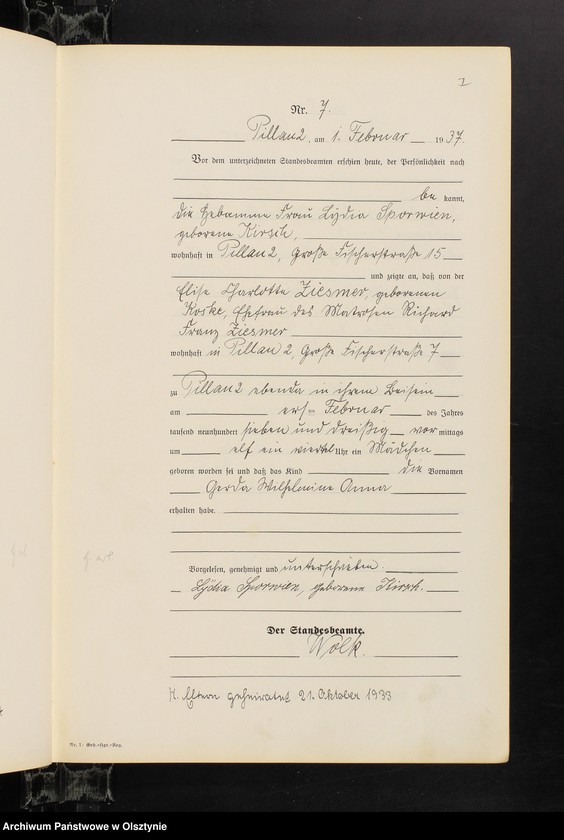 7
Nr. 7.
Pillau 2, am 1. Februar 1937.
Vor dem unterzeichneten Standesbeamten erschien heute, der Persönlichkeit nach
be kannt,
die Hebamme Frau Lydia Sporwien,
geborene Kirsch,
wohnhaft in Pillau 2, Große Fischerstraße 15
und zeigte an, daß von der
Elise Charlotte Ziesmer, geborenen
Koske, Ehefrau des Matrosen Richard
Franz Ziesmer
wohnhaft in Pillau 2, Große Fischerstraße 7
zu Pillau 2 ebenda in ihrem Beisein
am ersten Februar des Jahres
tausend neunhundert sieben und dreißig vor mittags
um elf ein viertel Uhr ein Mädchen
geboren worden sei und daß das Kind die Vornamen
Gerda Wilhelmine Anna
erhalten habe.
Vorgelesen, genehmigt und unterschrieben.
Lydia Sporwien, geborene Kirsch.
Der Standesbeamte.
Wölk.
H. Eltern geheiratet 21. Oktober 1933
Archiwum Państwowe w Olsztynie